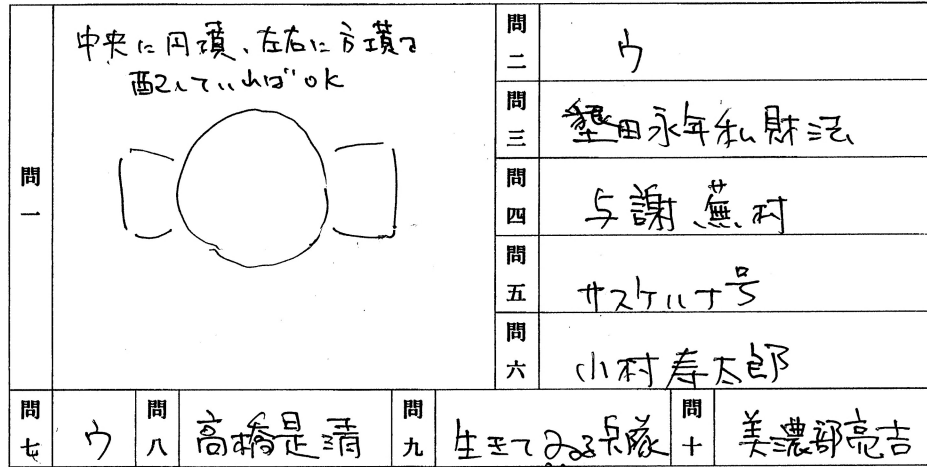 問一
中央に円墳、左右に方墳を
配していればOK
問二
ウ
問三
墾田永年私財法
問四
与謝蕪村
問五
サスケハナ号
問六
小村寿太郎
問七
ウ
問八
高橋是清
問九
生きてゐる兵隊
問十
美濃部亮吉